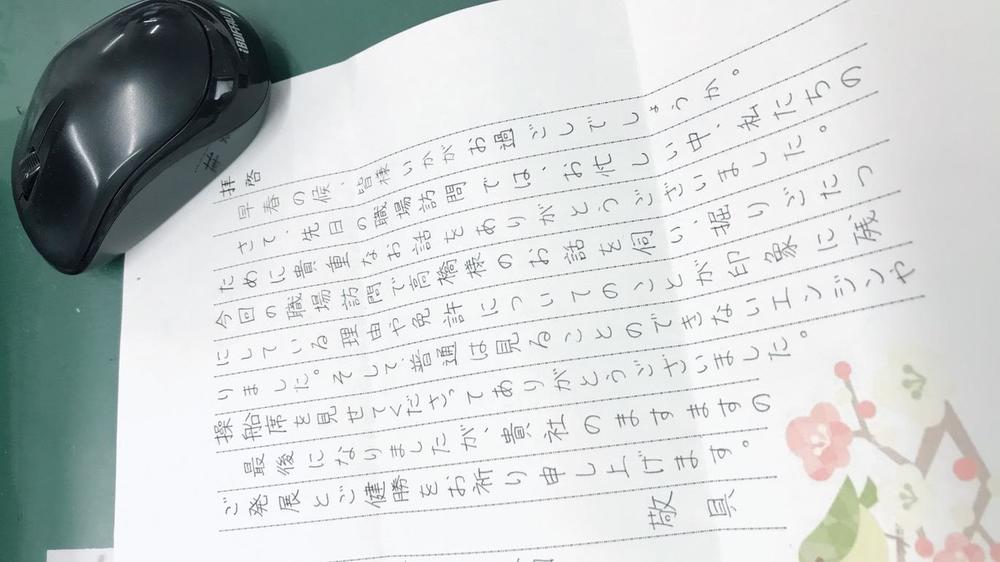 iBUFFALO
拝啓
早春の候、皆様いかがお過ごしでしょうか。
さて、先日の職場訪問では、お忙しい中、私たちの
ために貴重なお話をありがとうございました。
今回の職場訪問で高橋様のお話を伺い、掘りごたつ
にしている理由や免許についてのことが印象に残
りました。そして普通は見ることのできないエンジンや
操船席を見せてくださってありがとうございました。
最後になりましたが、貴社のますますの
ご発展とご健勝をお祈り申し上げます。
敬具